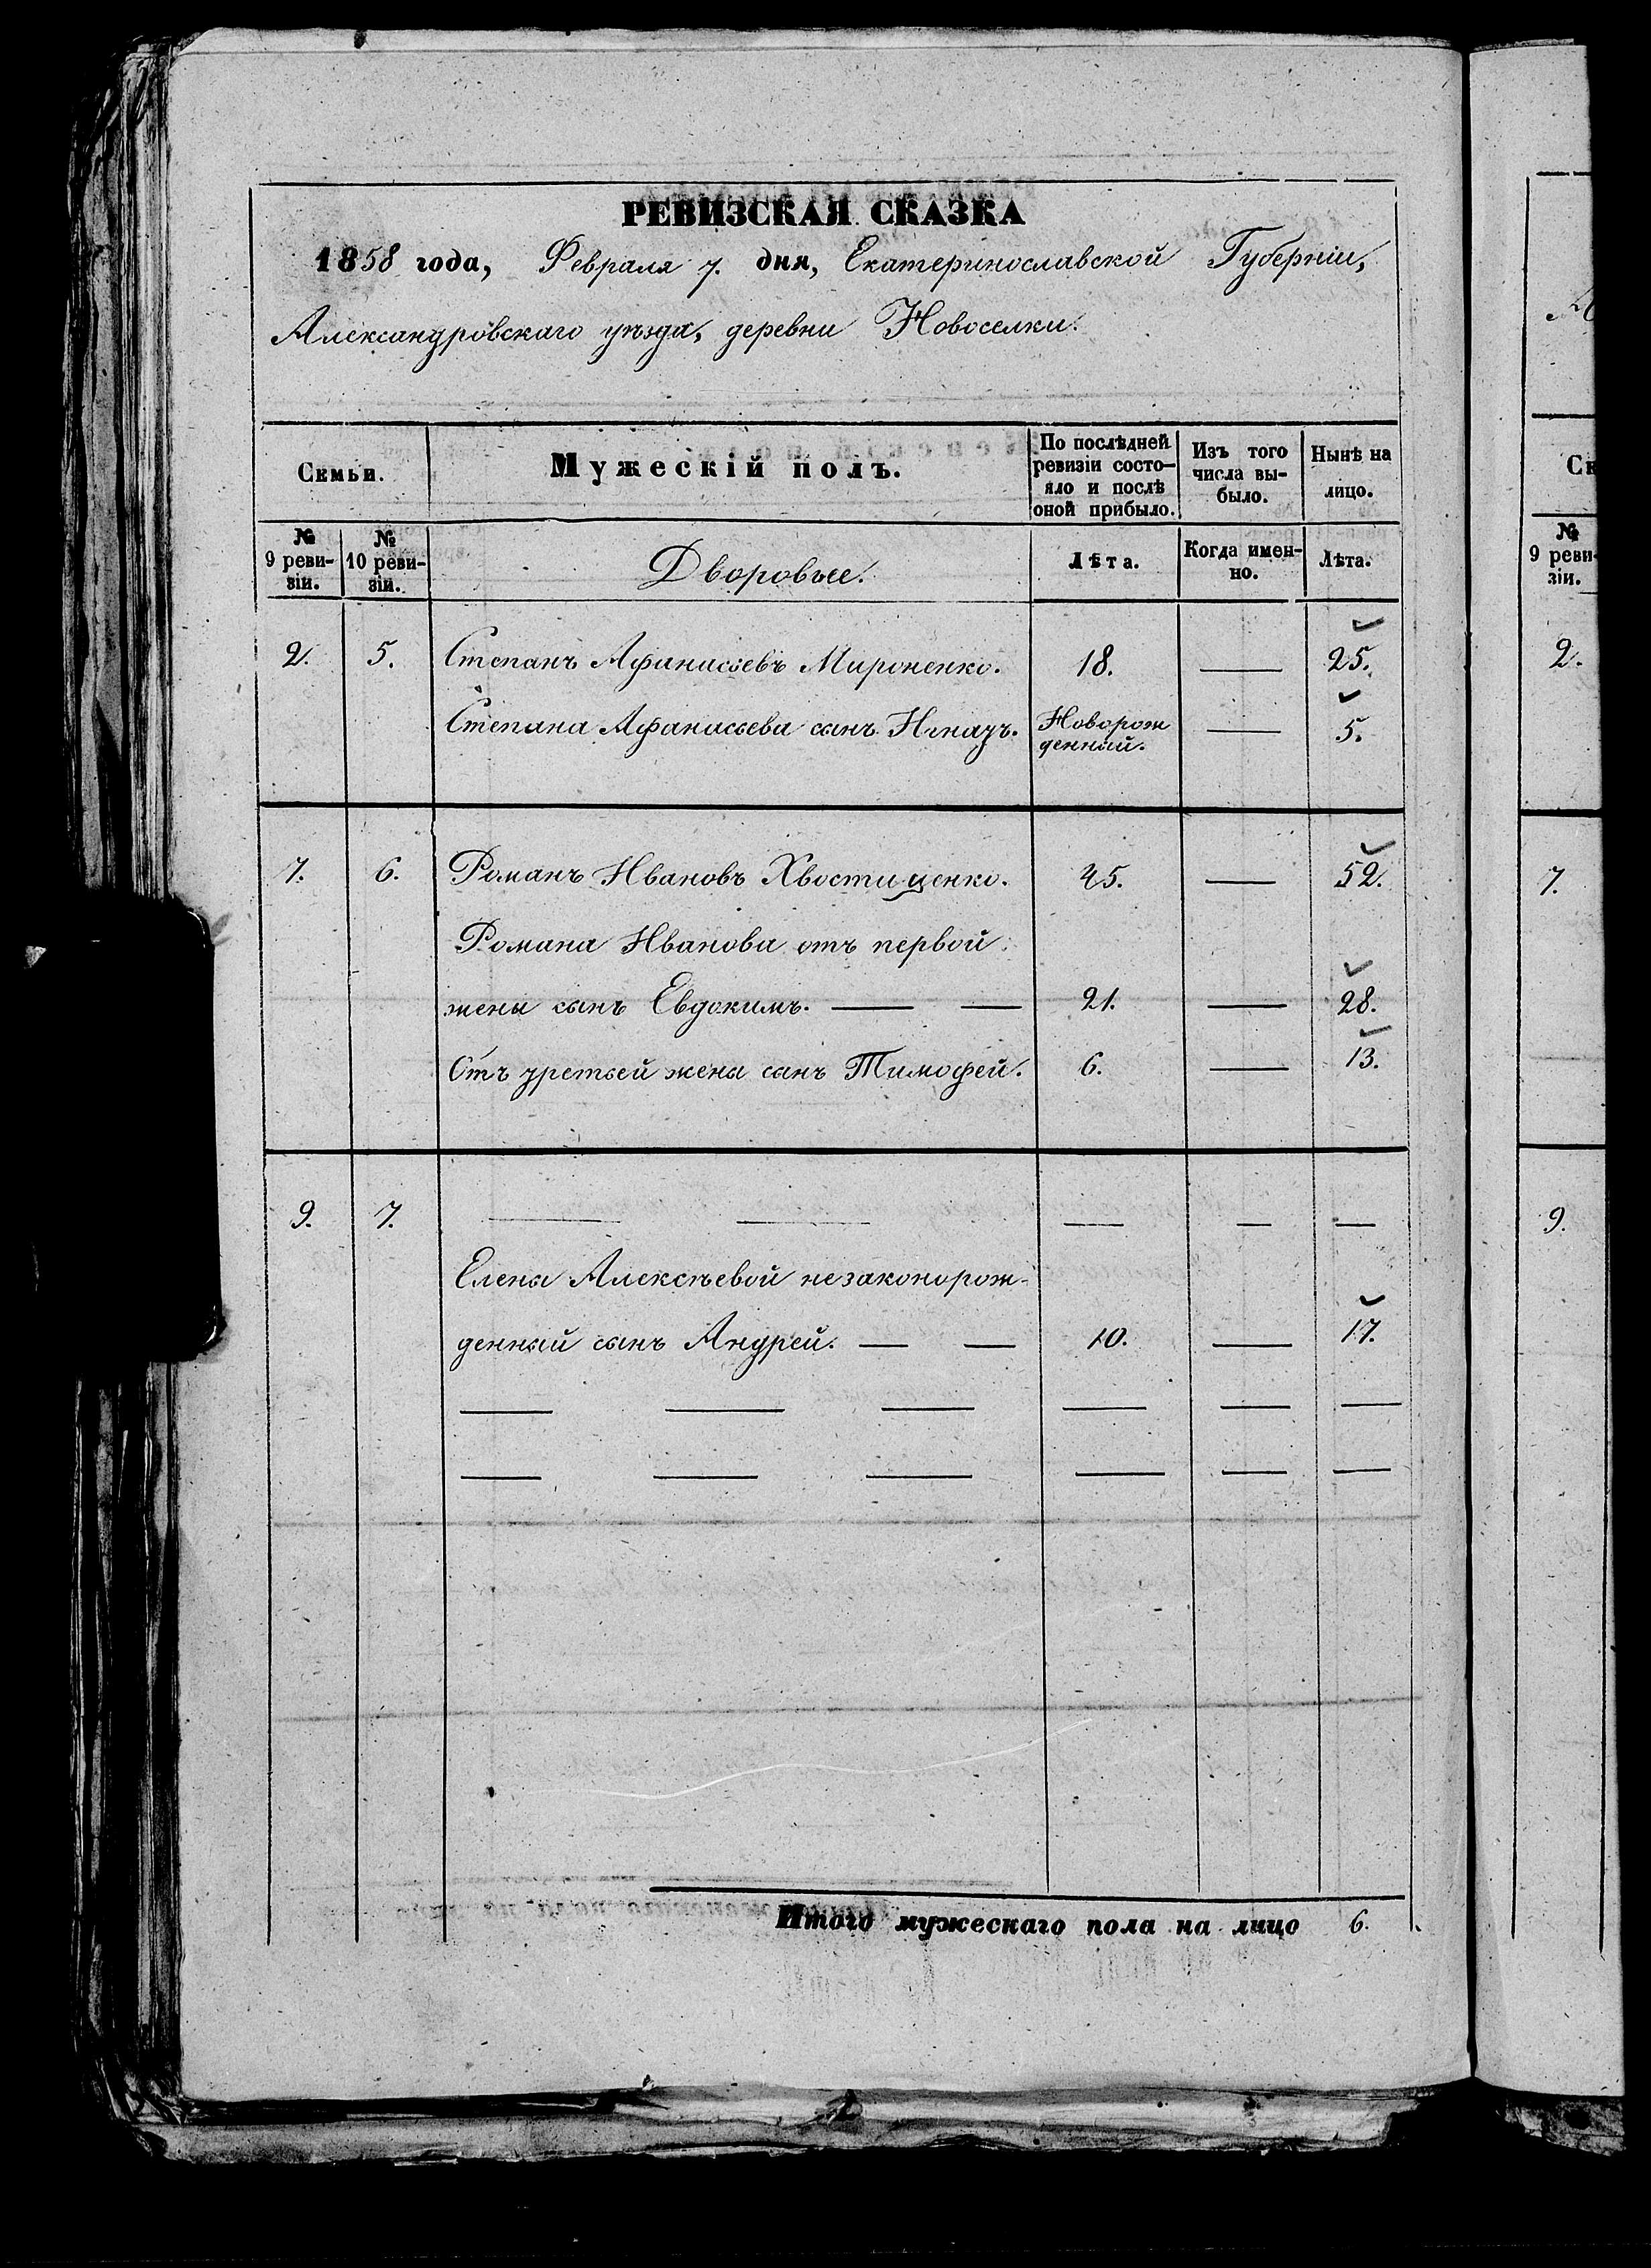 РЕВИЗСКАЯ СКАЗКА
1858 года, Февраля 7. дня, Екатеринославской Губерніи,
Александровскаго уѣзда, деревни Новоселки.
Семьи.
Мужескій полъ.
По послѣдней ревизіи состо-
яло и послѣ оной прибыло.
Изъ того числа вы-
было.
Нынѣ на лицо.
№ 9 реви-
зіи.
№ 10 реви-
зіи.
Дворовые.
Лѣта.
Когда имен-
но.
Лѣта.
2. 5. Степанъ Афанасьевъ Мироненко. 18. — 25.
Степана Афанасьева сынъ Игнатъ. Новорож
денный. — 5.
7. 6. Романъ Ивановъ Хвостиценко. 45. — 52.
Романа Иванова отъ первой
жены сынъ Евдокимъ. — — 21. — 28.
Отъ третьей жены сынъ Тимофей. 6. — 13.
9. 7. — — — — —
Елены Алексѣевой незаконорож-
денный сынъ Андрей. — — 10. — 17.
— — — — — —
— — — — — —
Итого мужескаго пола на лицо 6.
Се
№
9 реви-
зіи.
2.
7.
9.